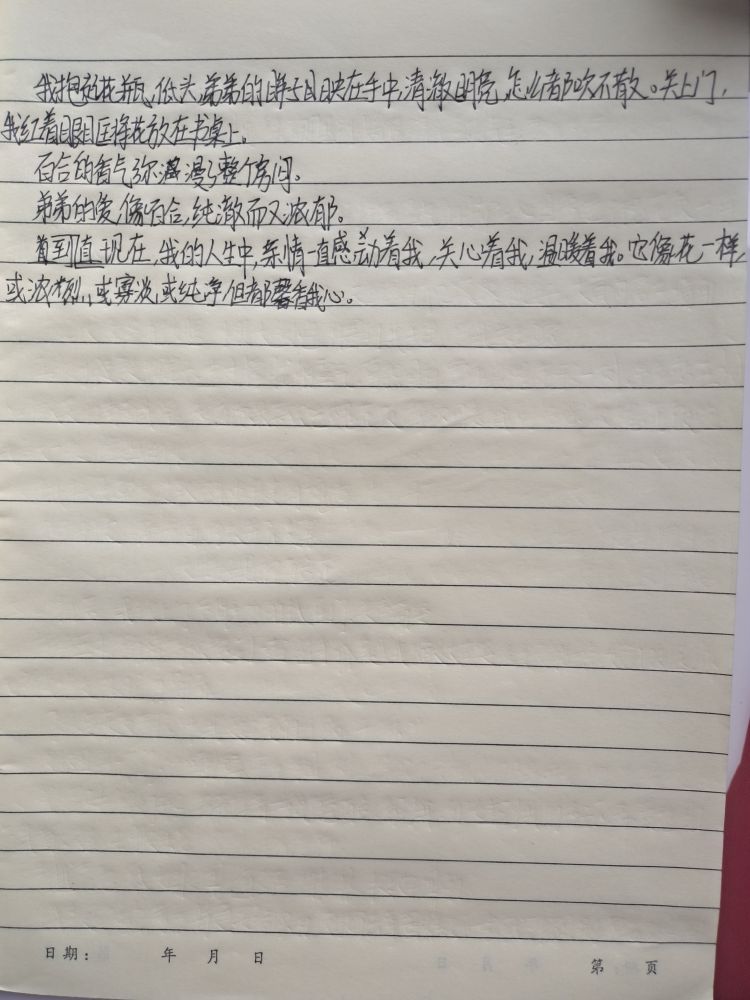 我抱着花瓶,低头,弟弟的眸子映在手中,清澈明亮,怎么都吹不散。关上门,
我红着眼眶将花放在书桌上。
百合的香气弥漫了整个房间。
弟弟的爱,像百合,纯澈而又浓郁。
直到现在,我的人生中,亲情一直感动着我,关心着我,温暖着我。它像花一样,
或浓烈,或寡淡,或纯净,但都馨香我心。
日期: 年 月 日
第 页